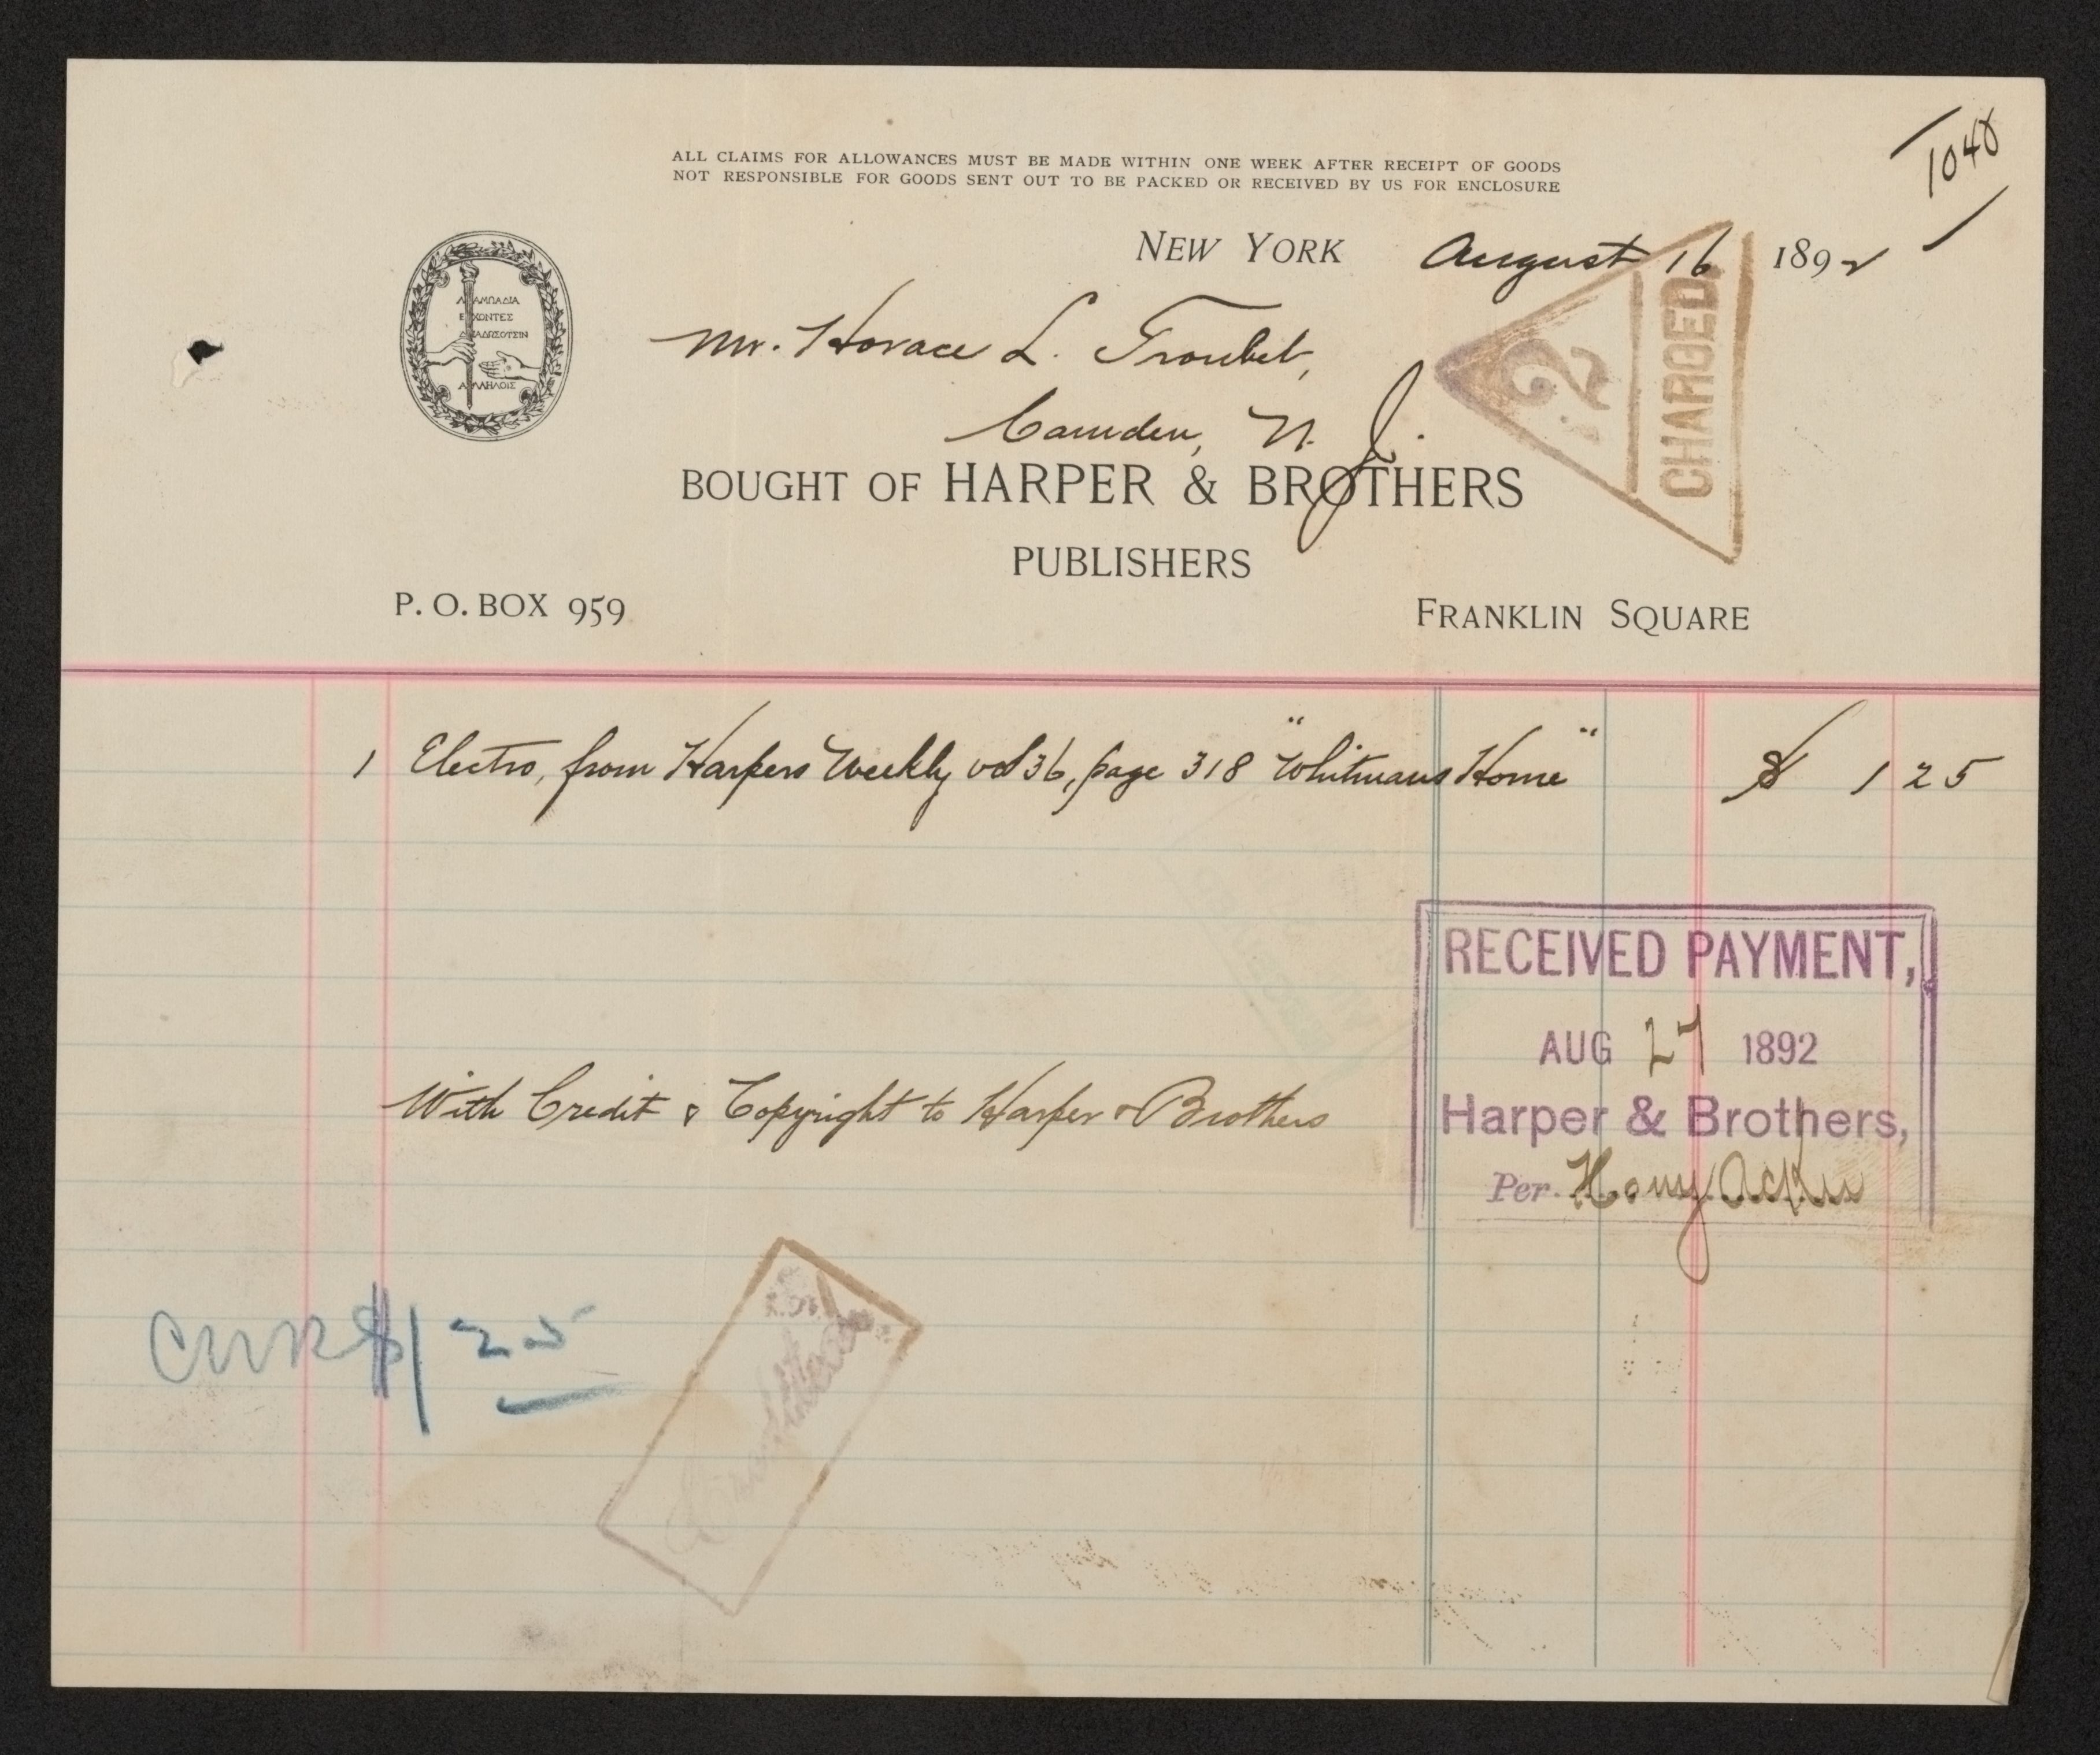 1048
ALL CLAIMS FOR ALLOWANCES MUST BE MADE WITHIN ONE WEEK AFTER RECEIPT OF GOODS
NOT RESPONSIBLE FOR GOODS SENT OUT TO BE PACKED OR RECEIVED BY US FOR ENCLOSURE
NEW YORK August 16 1892
ΛΑΜΠΑΔΙΑ
ΕΧΟΝΤΕΣ
ΔΙΑΔΩΣΟΥΣΙΝ
ΑΛΛΗΛΟΙΣ
Mr. Horace L. Traubel,
Camden, N. J.
2
CHARGED
BOUGHT OF HARPER & BROTHERS
PUBLISHERS
P. O. BOX 959 FRANKLIN SQUARE
1 Electro, from Harpers Weekly vol 36, page 318 "Whitmans Home" $ 1 25
RECEIVED PAYMENT,
AUG 27 1892
Harper & Brothers,
Per
With Credit & Copyright to Harper & Brothers
$1 25